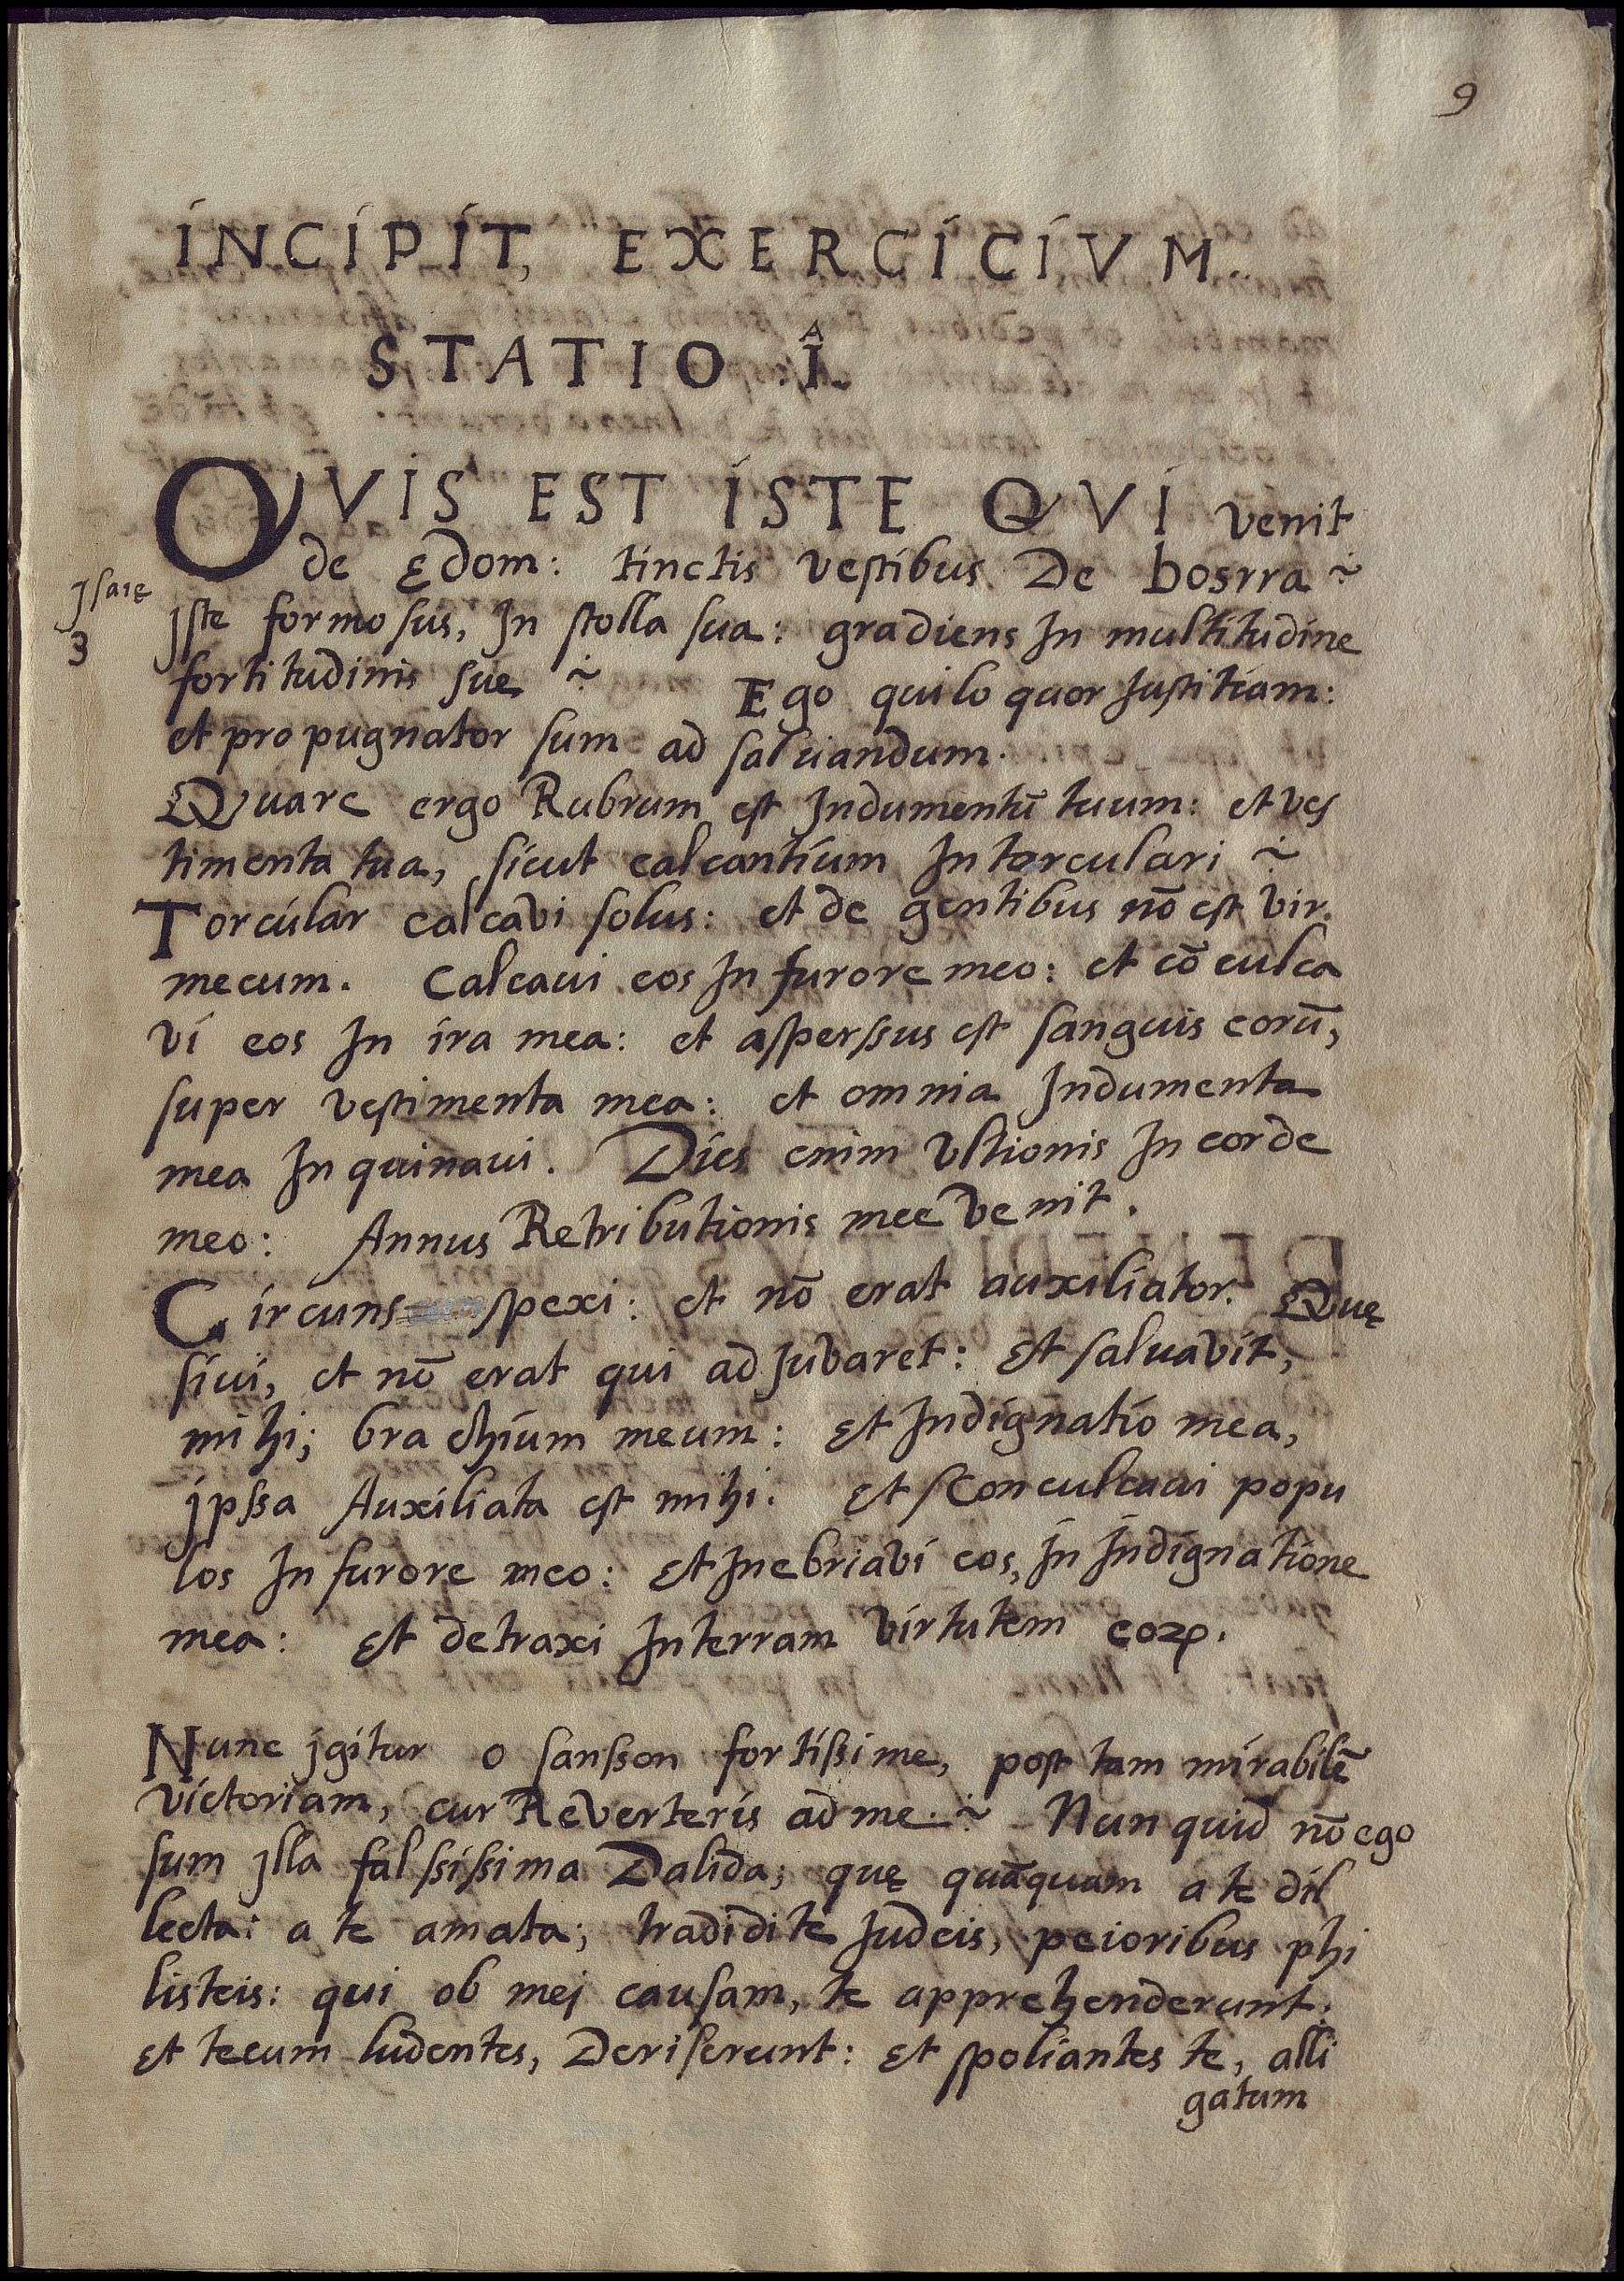 9
INCIPIT, EXERCICIVM.
STATIO .Iᴬ.
QVIS EST ISTE QVI venit
de Edom: tinctis vestibus De bosrra ~
Isaię
3
Iste formosus, In stolla sua: gradiens In multitudine
fortitudinis suę ~ Ego qui loquor Iustitiam:
et propugnator sum ad salvandum.
Quare ergo Rubrum est Indumentū tuum: et ves
timenta tua, sicut calcantium In torculari ~
Torcular calcavi solus: et de gentibus nō est vir
mecum. Calcaui eos In furore meo: et cōculca
vi eos In ira mea: et asperssus est sanguis eorū,
super vestimenta mea: et omnia Indumenta
mea Inquinaui. Dies enim vltionis In corde
meo: Annus Retributionis mee Venit.
Circuns spexi: et nō erat auxiliator. Quę
siui, et nō erat qui adJuvaret: Et salvavit,
mihi; brachium meum: Et Indignatio mea,
jpssa Auxiliata est mihi. Et Conculcaui popu
los In furore meo: Et Inebriavi eos, in indignatione
mea: Et detraxi In terram virtutem eoꝝ.
Nunc jgitur o sansson fortissime, post tam mirabilē
victoriam, cur Reverteris ad me ~ Nunquid nō ego
sum jlla falssissima Dalida; quę quāquam a te dil
lecta: a te amata; tradidi te Judeis, peioribus phi
listeis: qui ob mej causam, te apprehenderunt:
Et tecum ludentes, Deriserunt: Et spoliantes te, alli
gatum